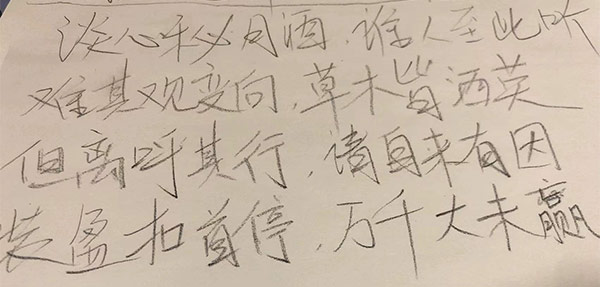 淡心秘月酒，谁人至此听
难其观变向，草木皆洒英
但离呼其行，请自来有因
装盈扣首停，万千大未赢